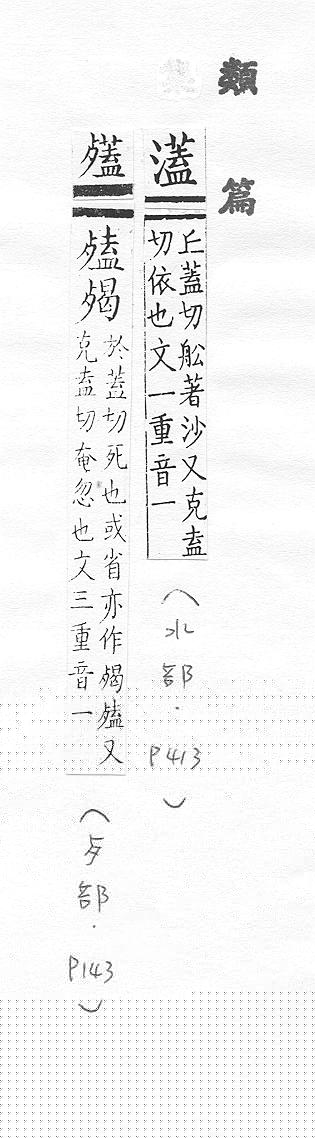 類篇
濭
丘蓋切舩著沙又克盍
切依也文一重音一
（水部．P413）
於蓋切死也或省亦作又
克盍切奄忽也文三重音一
（歹部．P143）